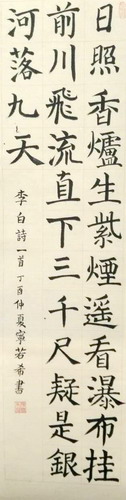 日照香爐生紫煙遥看瀑布挂
前川飛流直下三千尺疑是銀
河落九天
李白詩一首丁酉仲夏寧若希書